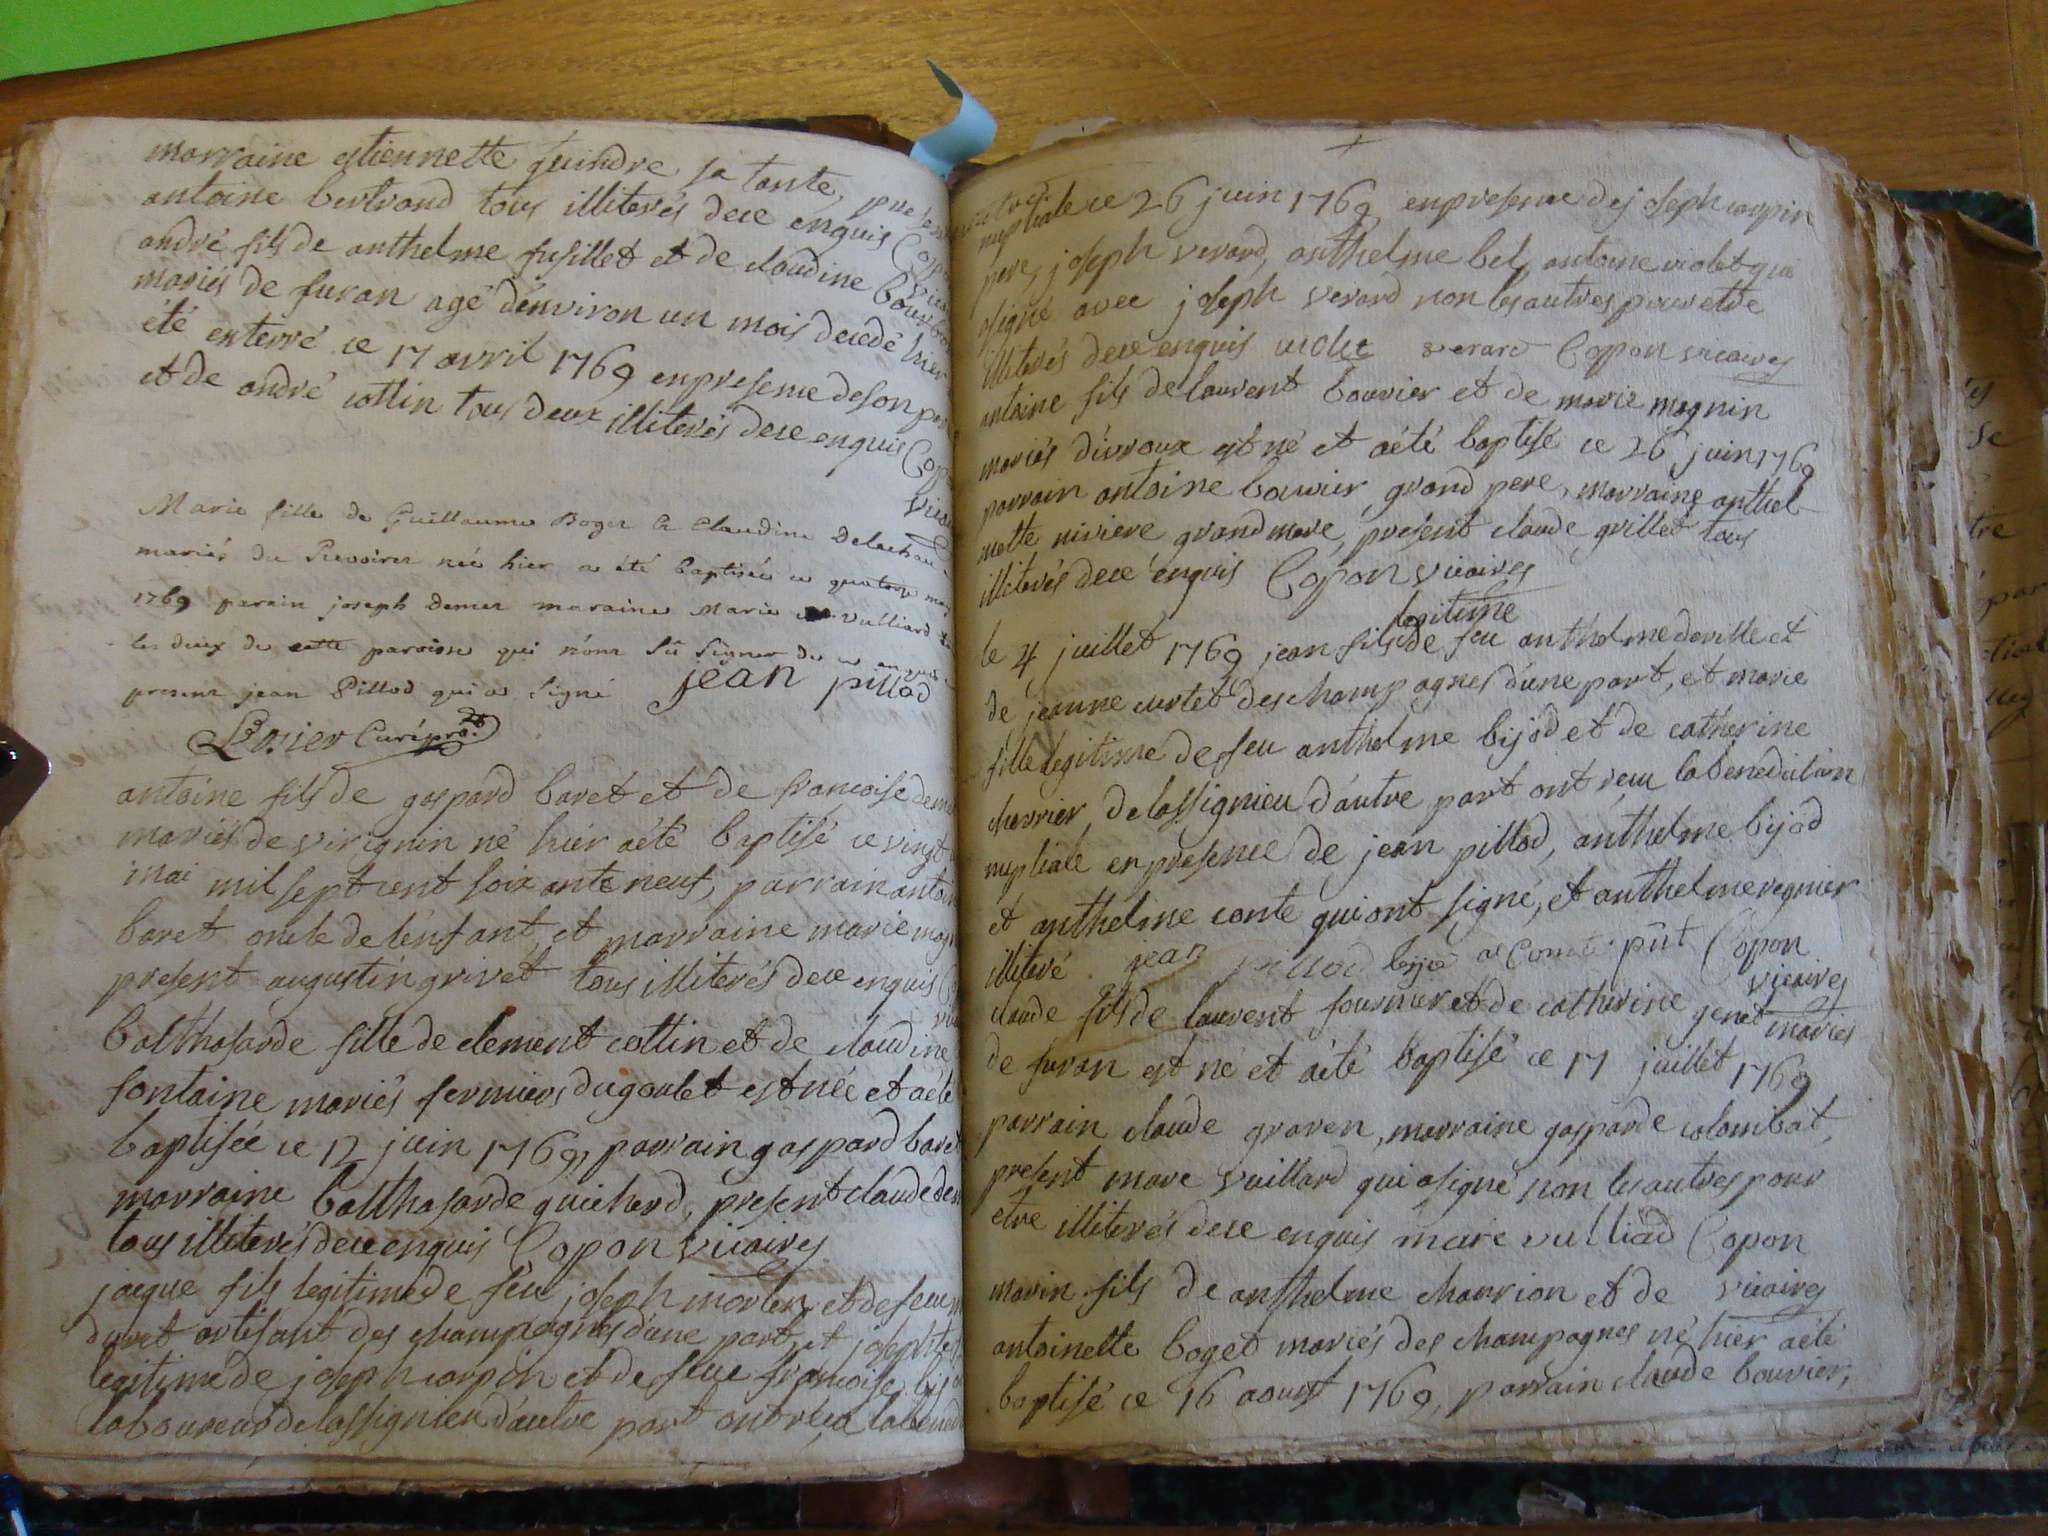 marraine estiennette guindre sa tante, present
antoine bertrand tous illiterés dece enquis
andré fils de anthelme fusillet et de claudine
mariés de furan agé d'environ un mois decedé hier
été enterré ce 17 avril 1769 enpresence deson pere
et de andré cottin tous deux illiterés dece enquis
Marie fille de Guillaume Boget & Claudine
mariés du née hier a été baptisée ce quatorze mai
1769 parain joseph Demer maraine Marie vulliard
les deux de cette paroisse qui n'ont sû signer de ce enquis
present jean Pillod qui a signé jean pillod
Curé
antoine fils de gaspard baret et de francoise
mariés de virignin né hier aété baptisé ce vingt
mai mil sept cent soixante neuf, parrain antoine
baret oncle de lenfant, et marraine marie
present augustin grivet tous illiterés dece enquis
balthasarde fille de clement cottin et de claudine
fontaine mariés fermiers du goulet est née et aété
baptisée ce 12 juin 1769, parrain gaspard baret
marraine balthasarde guicherd, present claude
tous illiterés dece enquis Copon vicaires
jacque fils legitime de feu joseph et de feue
duret artisant des champagnes d'une part, et
legitime de joseph carpin et de feue francoise
laboureurs de lassignieu d'autre part ont reçu
nuptiale ce 26 juin 1769 enpresence de joseph carpin
pere, joseph verard, anthelme bel, antoine violet qui
signé avec joseph verard non les autres pour etre
illiterés dece enquis violet verard Copon vicaires
antoine fils de laurent bouvier et de marie magnin
mariés d'ivroux est né et aété baptisé ce 26 juin 1769
parrain antoine bouvier grand pere, marraine anthel
mette riviere grand mere, présent claude grillet tous
illiterés dece enquis Copon vicaires
legitime
le 4 juillet 1769 jean fils de feu anthelme deville et
de jeanne curtet des champagnes d'une part, et marie
fille legitime de feu anthelme bijod et de catherine
chevrier de lassignieu d'autre part ont reçu la benediction
nuptiale en presence de jean pillod, anthelme bijod
et anthelme conte qui ont signé, et anthelme regnier
illiteré jean pillod Copon
vicaires
claude fils de laurent fournier et de catherine genet mariés
de furan est né et aété baptisé ce 17 juillet 1769
parrain claude graven, marraine gasparde colombat,
present marc vuillard qui a signé non les autres pour
etre illiterés dece enquis marc vulliad Copon
marin fils de anthelme charrion et de vicaires
antoinette boget mariés des champagnes né hier aété
baptisé ce 16 aoust 1769, parrain claude bouvier,